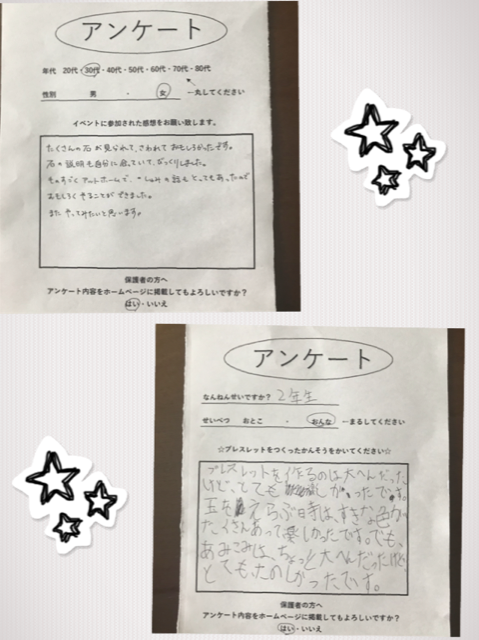 アンケート
年代 20代・30代・40代・50代・60代・70代・80代
性別 男 ・ 女 ←丸してください
イベントに参加された感想をお願い致します。
たくさんの石が見られて、さわれておもしろかったです。
石の説明も自分に合っていて、びっくりしました。
ものすごくアットホームで、
おもしろくすることができました。
また やってみたいと思います。
保護者の方へ
アンケート内容をホームページに掲載してもよろしいですか?
はい・いいえ
アンケート
なんねんせいですか? 2年生
せいべつ おとこ ・ おんな ←まるしてください
☆ブレスレットをつくったかんそうをかいてください☆
ブレスレットを作るのは大へんだった
けど、とても
玉をえらぶ時は、すきな色が
たくさんあって楽しかったです。でも、
あみこみは、ちょっと大へんだったけど、
とてもたのしかったです。
保護者の方へ
アンケート内容をホームページに掲載してもよろしいですか?
はい・いいえ